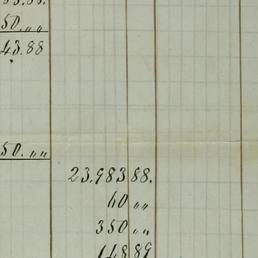 50.,,
43.88
50.,,
23.983 88.
60 ,,
350 ,,
148 89